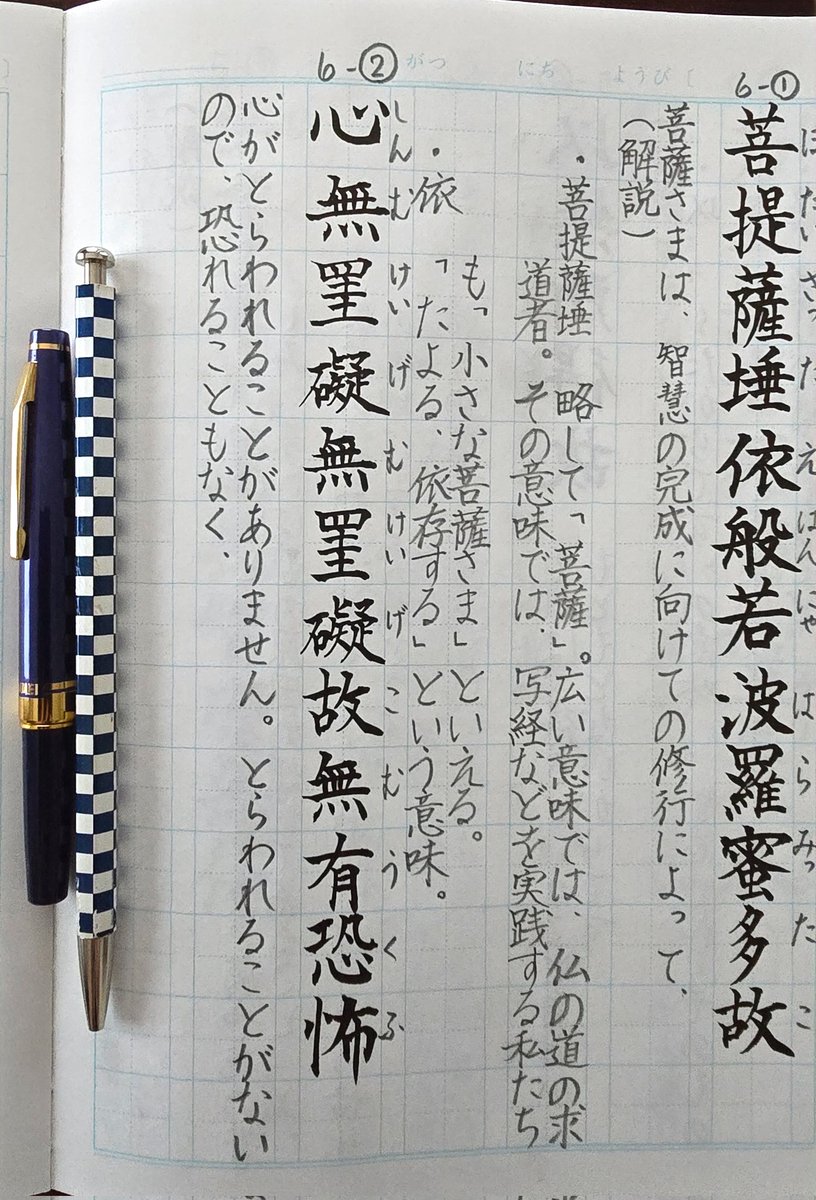 6-①
菩提薩埵依般若波羅蜜多故
ぼだいさったえはんにゃはらみったこ
菩薩さまは、智慧の完成に向けての修行によって、
(解説)
・菩提薩埵 略して「菩薩」。広い意味では、仏の道の求
道者。その意味では、写経などを実践する私たち
も「小さな菩薩さま」といえる。
・依 「たよる、依存する」という意味。
がつ にち ようび
6-②
心無罣礙無罣礙故無有恐怖
しんむけいげむけいげこむうくふ
心がとらわれることがありません。とらわれることがない
ので、恐れることもなく、